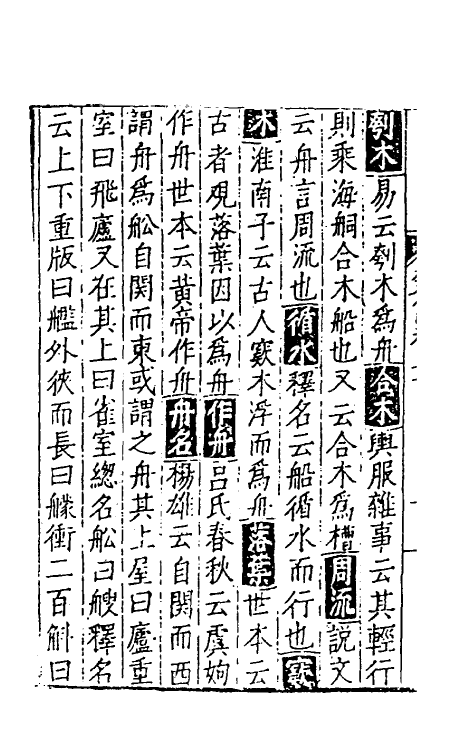 刳木易云刳木為舟合木輿服雜事云其輕行
則乘海舸合木船也又云合木為樐周流說文
云舟言周流也循水釋名云船循水而行也窾
木淮南子云古人窾木浮而為舟落葉世本云
古者观落葉因以為舟作舟呂氏春秋云虞姁
作舟世本云黃帝作舟舟名楊雄云自関而西
謂舟為舩自関而東或謂之舟其上屋曰廬重
室曰飛廬又在其上曰雀室總名舩曰艘釋名
云上下重版曰艦外狹而長曰艨衝二百斛曰